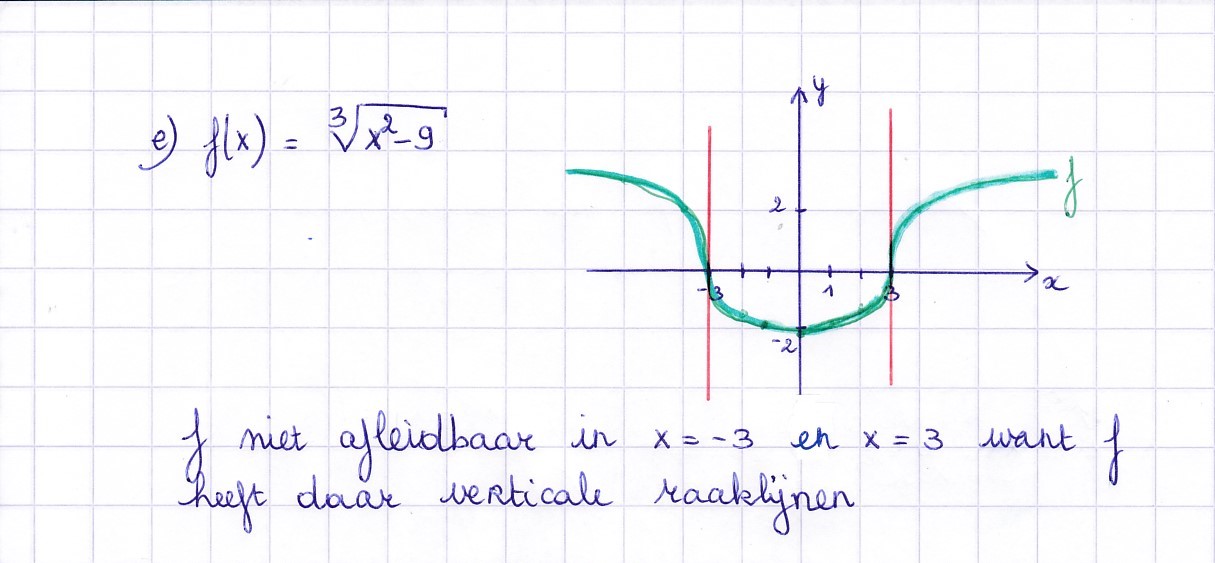 e) f(x) = ∛(x²-9)
y
f
2
-3
1
3
x
-2
f niet afleidbaar in x = -3 en x = 3 want f
heeft daar verticale raaklijnen